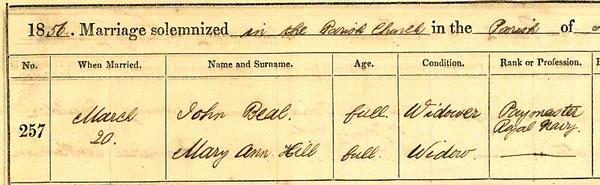 1856. Marriage solemnized in the Parish Church in the Parish of
No. When Married. Name and Surname. Age. Condition. Rank or Profession.
257
March 20.
John Beal. full. Widower Paymaster Royal Navy.
Mary Ann Hill full. Widow. —